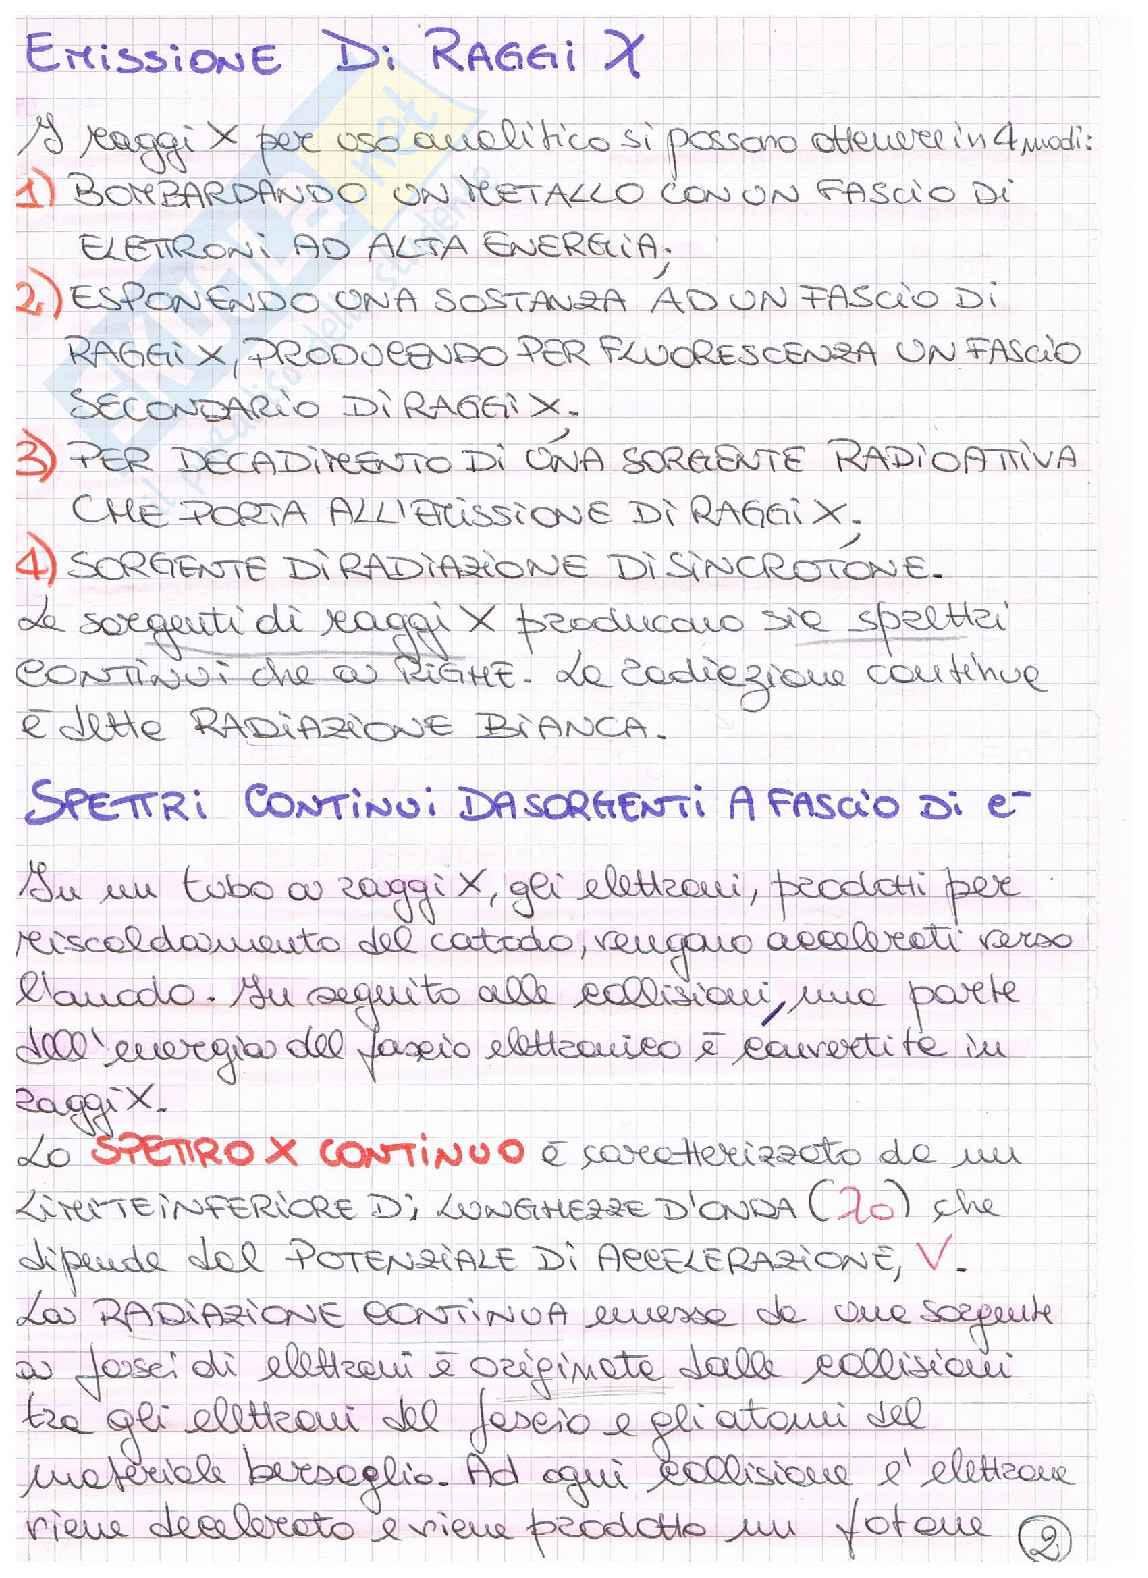 EMISSIONE DI RAGGI X
I raggi X per uso analitico si possono ottenere in 4 modi:
1) BOMBARDANDO UN METALLO CON UN FASCIO DI
ELETTRONI AD ALTA ENERGIA;
2) ESPONENDO UNA SOSTANZA AD UN FASCIO DI
RAGGI X, PRODUCENDO PER FLUORESCENZA UN FASCIO
SECONDARIO DI RAGGI X;
3) PER DECADIMENTO DI UNA SORGENTE RADIOATTIVA
CHE PORTA ALL'EMISSIONE DI RAGGI X;
4) SORGENTE DI RADIAZIONE DI SINCROTONE.
Le sorgenti di raggi X producono sia spettri
CONTINUI che a RIGHE. La radiazione continua
è detta RADIAZIONE BIANCA.
SPETTRI CONTINUI DA SORGENTI A FASCIO DI e⁻
In un tubo a raggi X, gli elettroni, prodotti per
riscaldamento del catodo, vengono accelerati verso
l'anodo. In seguito alle collisioni, una parte
dell'energia del fascio elettronico è convertita in
raggi X.
Lo SPETTRO X CONTINUO è caratterizzato da un
LIMITE INFERIORE DI LUNGHEZZE D'ONDA (λ0) che
dipende dal POTENZIALE DI ACCELERAZIONE, V.
La RADIAZIONE CONTINUA emessa da una sorgente
a fasci di elettroni è originata dalle collisioni
tra gli elettroni del fascio e gli atomi del
materiale bersaglio. Ad ogni collisione l'elettrone
viene decelerato e viene prodotto un fotone
2
SKUOLA.net
il paradiso dello studente